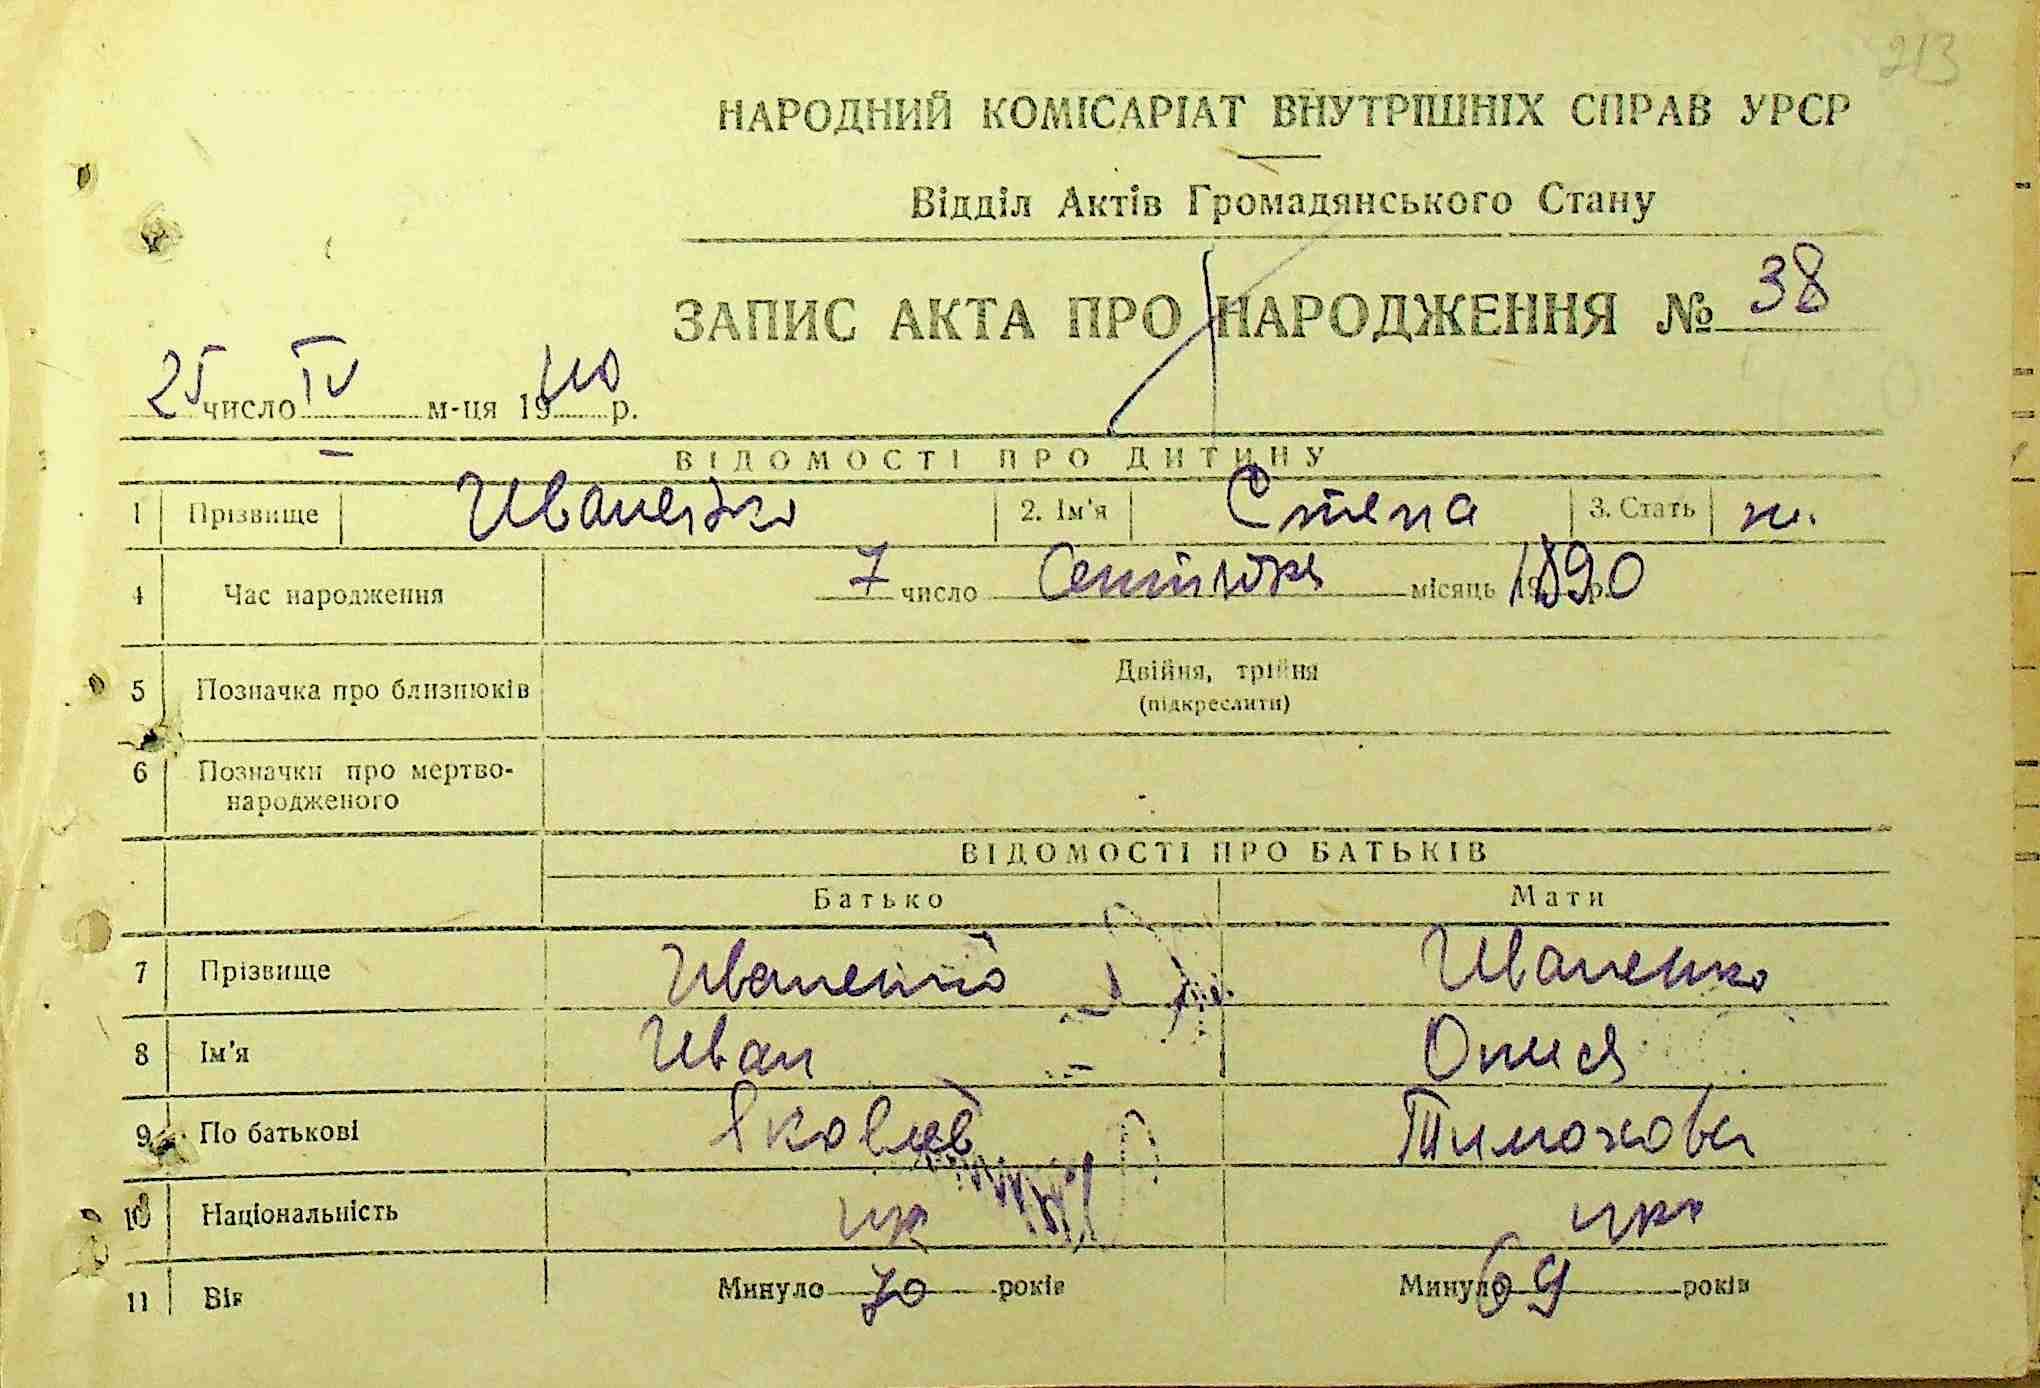 213
НАРОДНИЙ КОМІСАРІАТ ВНУТРІШНІХ СПРАВ УРСР
Відділ Актів Громадянського Стану
ЗАПИС АКТА ПРО НАРОДЖЕННЯ № 38
25 число IV м-ця 1940 р.
ВІДОМОСТІ ПРО ДИТИНУ
1 Прізвище Иваненко 2. Ім'я Степа 3. Стать
4 Час народження 7 число місяць 1890 р.
5 Позначка про близнюків Двійня, трійня
(підкреслити)
6 Позначки про мертво-
народженого
ВІДОМОСТІ ПРО БАТЬКІВ
Батько Мати
7 Прізвище Иваненко Иваненко
8 Ім'я Иван Онися
9 По батькові Яковлев Тимохова
10 Національність укр
11 Вік Минуло 70 років Минуло 69 років